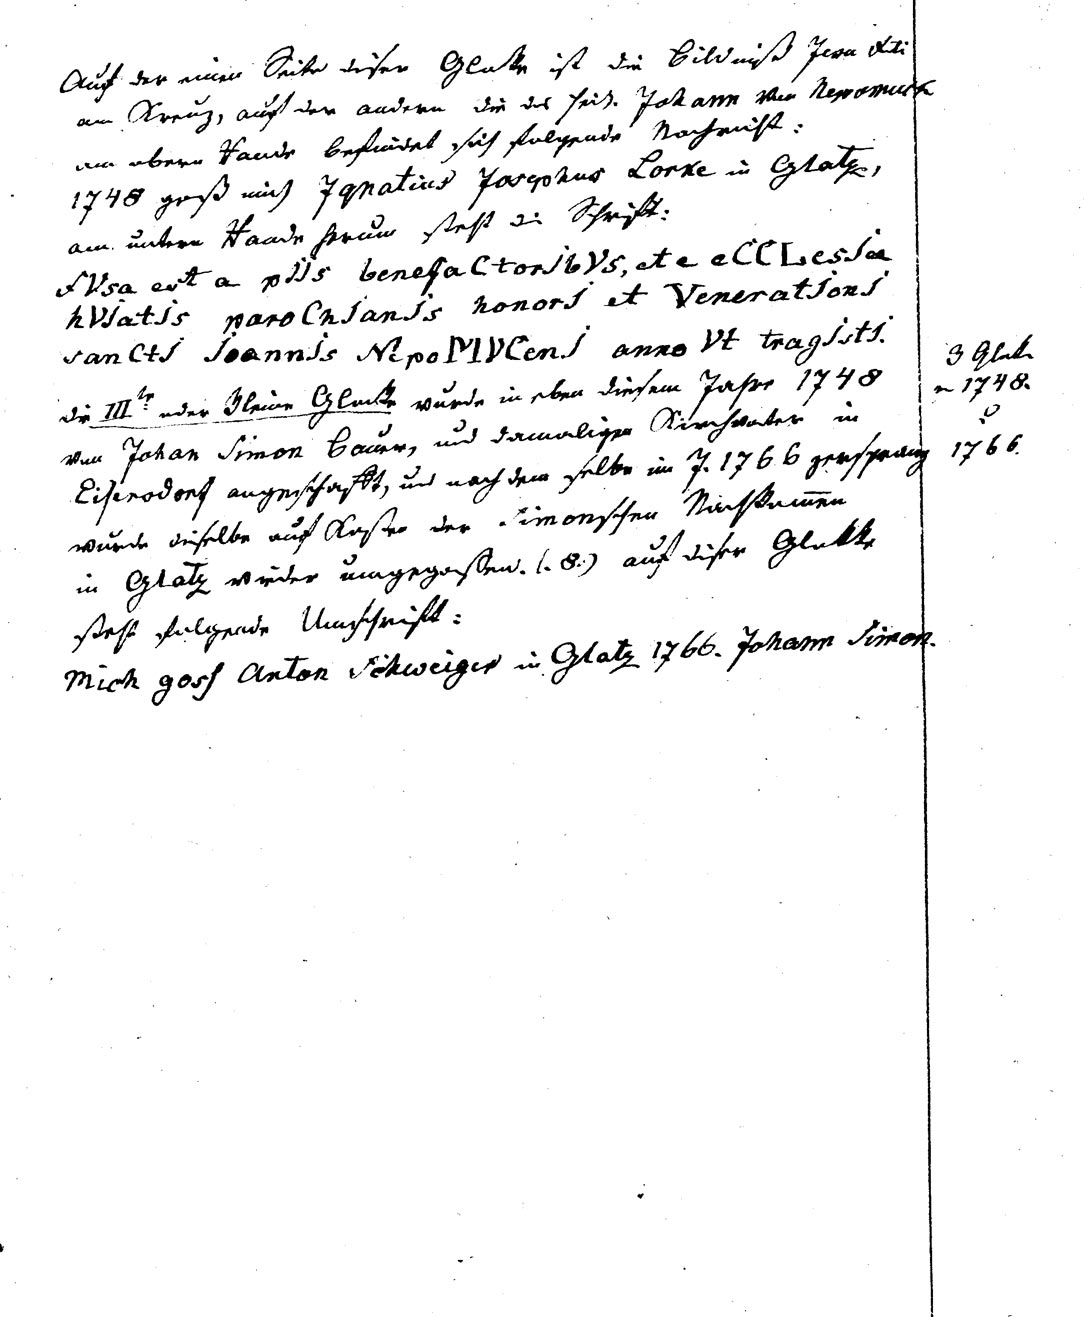 Auf der einen Seite diser Glokke ist die Bildniß Jesu Xti
am Kreuz, auf der andern die des heil. Johann von Nepomuck
am obern Rande befindet sich folgende Nachricht:
1748 goß mich Ignatius Josephus Lorke in Glatz,
am untern Rande herum steht die Schrift:
fVsa est a pIIs benefaCtorIbVs, et e eCCLesIae
hVIatIs paroChIanIs honorI et VeneratIonI
sanCtI Ioannis NepoMVCenI anno Vt tragIstI.
die IIIte oder Kleine Glocke wurde in eben diesem Jahre 1748
von Johan Simon Bauer, und damaligen Kirchvater in
Eisersdorf angeschafft, und nach dem selbe im J. 1766 zersprang
wurde dieselbe auf Kosten der Simonschen Nachkommen
in Glatz wieder umgegossen. (. 8.) auf diser Glokke
steht folgende Umschrift:
Mich goss Anton Schweiger in Glatz 1766. Johann Simon.
3 Glok
1748.
1766.